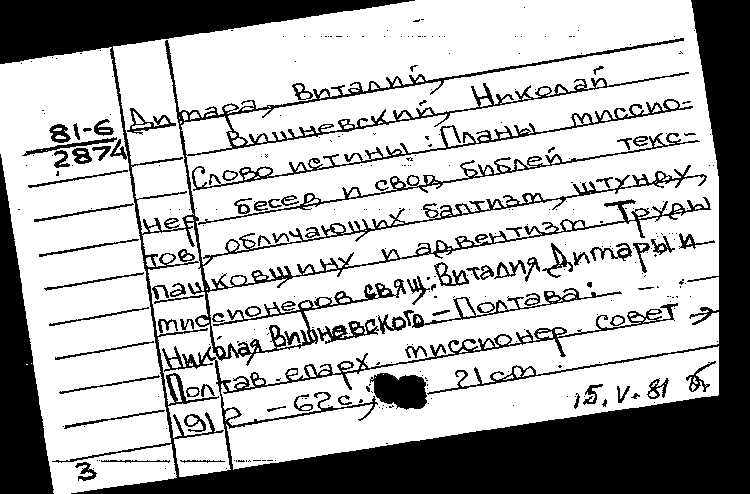 81-6
2874
Дитара, Виталий,
Вишневский, Николай
Слово истины: Планы миссио=
нер. бесед и свод библей. текс-
тов, обличающих баптизм, штунду,
пашковщину и адвентизм. Труды
миссионеров свящ: Виталия Дитары и
Николая Вишневского. - Полтава:
Полтав. епарх. миссионер. совет →
1912. - 62 с.; 21 cm.
15.V.81
3